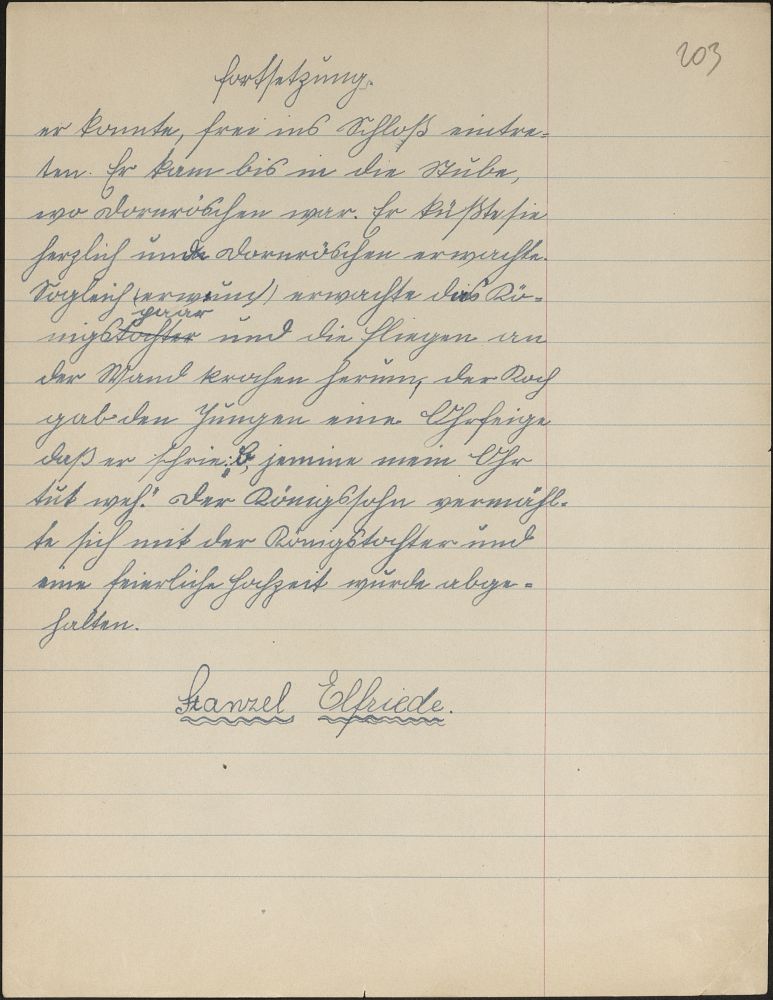 203
Fortsetzung.
er konnte, frei ins Schloß eintre=
ten. Er kam bis in die Stube,
wo Dornröschen war. Er küßte sie
herzlich und Dornröschen erwachte.
Sogleich (erwun) erwachte das Kö=
paar
nigstochter und die Fliegen an
der Wand krochen herum, der Koch
gab den Jungen eine Ohrfeige
daß er schrie: „O, jemine mein Ohr
tut weh." Der Königssohn vermähl=
te sich mit der Königstochter und
eine feierliche Hochzeit wurde abge=
halten.
Stanzel Elfriede.